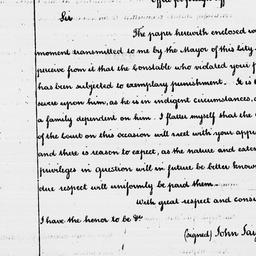 Office for
Sir
The paper herewith enclosed wa
moment transmitted to me by the Mayor of this City.
perceive from it that the Constable who violated your f
has been subjected to exemplary punishment. It is t
severe upon him, as he is in indigent circumstances, a
a family dependent on him. I flatter myself that the
of the Court on this occasion will meet with your appr
and there is reason to expect, as the nature and exten
privileges in question will in future be better know
due respect will uniformly be paid them.
With great respect and consi
I have the honor to be &c
(signed) John Jay